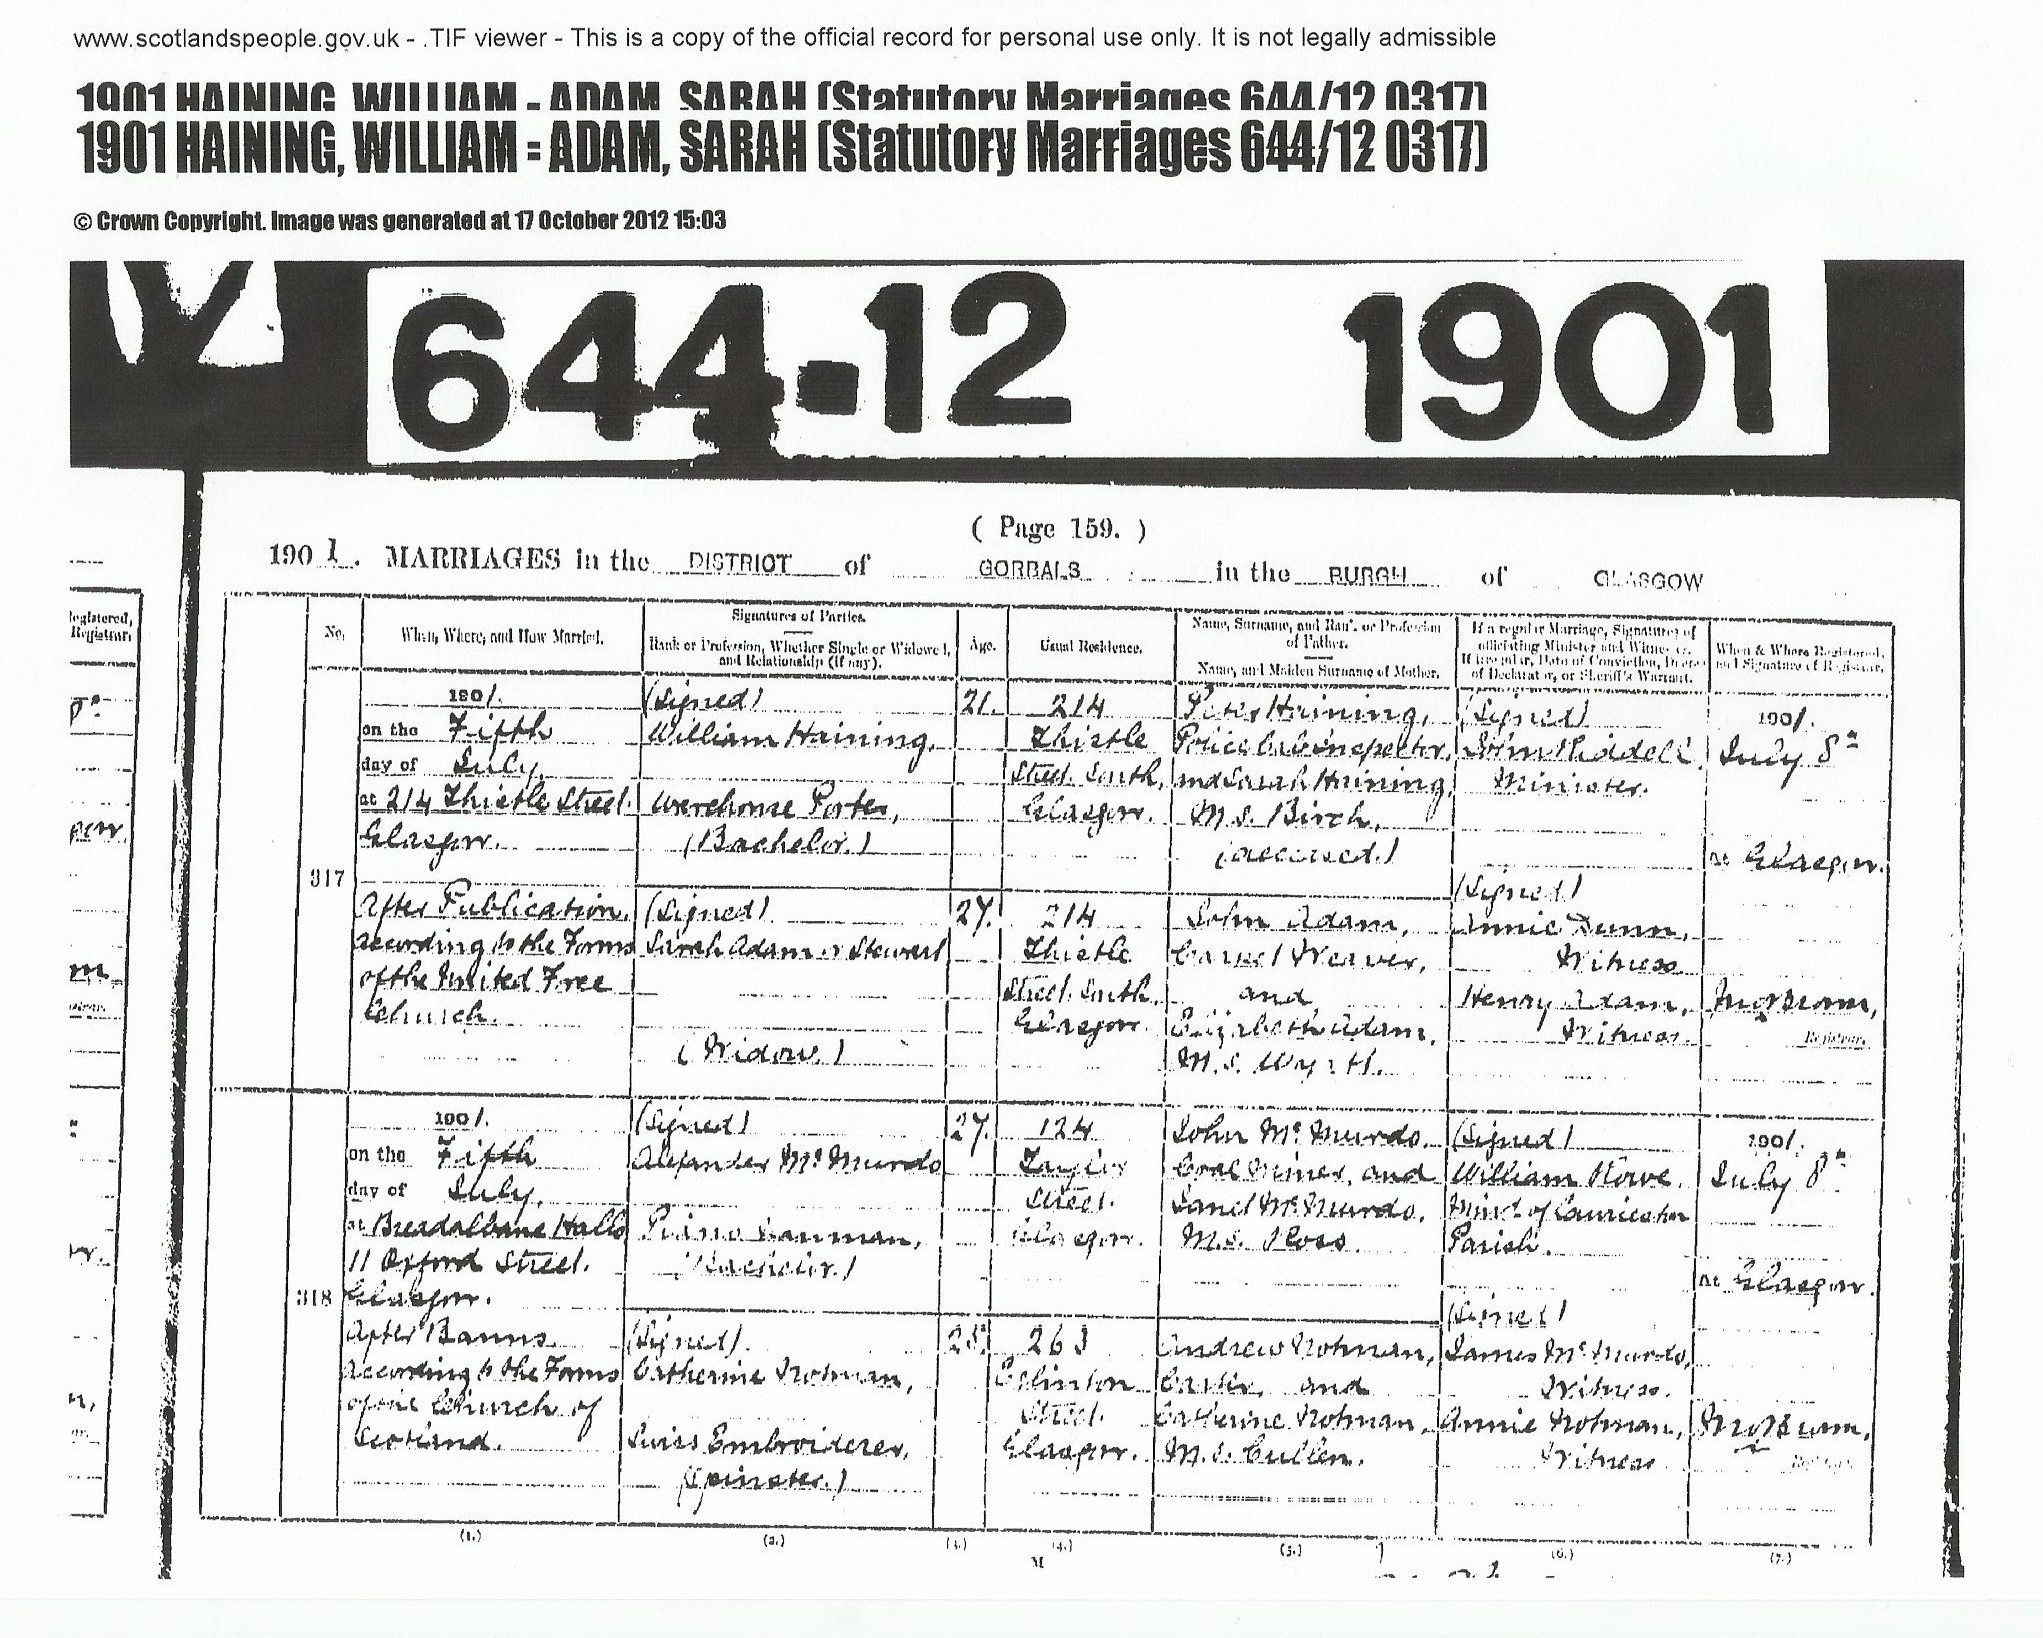 www.scotlandspeople.gov.uk - .TIF viewer - This is a copy of the official record for personal use only. It is not legally admissible
1901 HAINING, WILLIAM = ADAM, SARAH (Statutory Marriages 644/12 0317)
1901 HAINING, WILLIAM = ADAM, SARAH (Statutory Marriages 644/12 0317)
© Crown Copyright. Image was generated at 17 October 2012 15:03
644-12 1901
( Page 159. )
1901. MARRIAGES in the DISTRICT of GORBALS in the BURGH of GLASGOW
Registered,
Registrar.
No.
When, Where, and How Married.
Signatures of Parties.
Rank or Profession, Whether Single or Widowed,
and Relationship (if any).
Age.
Usual Residence.
Name, Surname, and Rank or Profession
of Father.
Name, and Maiden Surname of Mother.
If a regular Marriage, Signatures of
officiating Minister and Witnesses.
If irregular, Date of Conviction, Decree
of Declarator, or Sheriff's Warrant.
When & Where Registered,
and Signature of Registrar.
317
1901.
on the Fifth
day of July,
at 214 Thistle Street.
Glasgow.
After Publication.
according to the Forms
of the United Free
Church.
(Signed)
William Haining,
Warehouse Porter,
(Bachelor)
(Signed)
Sarah Adam or Stewart
(Widow)
21.
27.
214
Thistle
Street. South,
Glasgow.
214
Thistle
Street. South
Glasgow.
Peter Haining,
Police Cab Inspector,
and Sarah Haining,
M.S. Birch,
(deceased.)
John Adam,
Carpet Weaver,
and
Elizabeth Adam,
M.S.
(Signed)
John Riddell
Minister.
(Signed)
Annie Dunn,
Witness
Henry Adam,
Witness.
1901.
July 8th
at Glasgow.
Registrar.
318
1901.
on the Fifth
day of July,
at Breadalbane Halls
11 Oxford Street.
Glasgow.
After Banns.
according to the Forms
of the Church of
Scotland.
(Signed)
Alexander McMurdo
(Bachelor.)
(Signed).
Catherine Notman,
Swiss Embroiderer,
(Spinster.)
27.
25.
124
Taylor
Street.
Glasgow.
263
Eglinton
Street.
Glasgow.
John McMurdo.
Coal Miner, and
Janet McMurdo.
M.S. Ross.
Andrew Notman,
Carter, and
Catherine Notman,
M.S. Cullen.
(Signed)
William Rowe.
Minr. of Laurieston
Parish.
(Signed)
James McMurdo,
Witness.
Annie Notman,
Witness
1901.
July 8th
at Glasgow.
(1.) (2.) (3.) (4.) (5.) (6.) (7.)
M